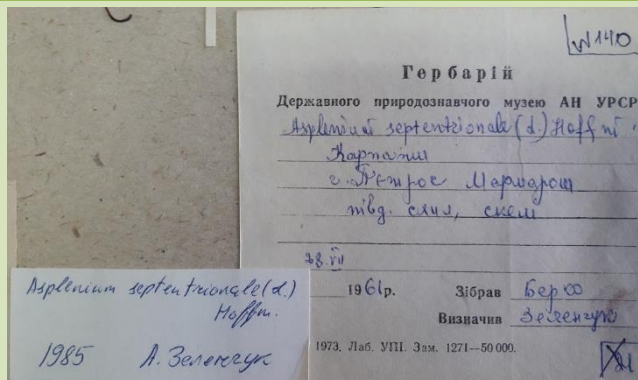 N 140
Гербарій
Державного природознавчого музею АН УРСР
Asplenium septentrionale (L.) Hoffm.
Карпати
г. Петрос Мармарош
півд. схил, скелі
28.VII
1961р. Зібрав Берко
Визначив Зеленчук
1973. Лаб. УПІ. Зам. 1271—50 000.
Asplenium septentrionale (L.)
Hoffm.
1985 А. Зеленчук